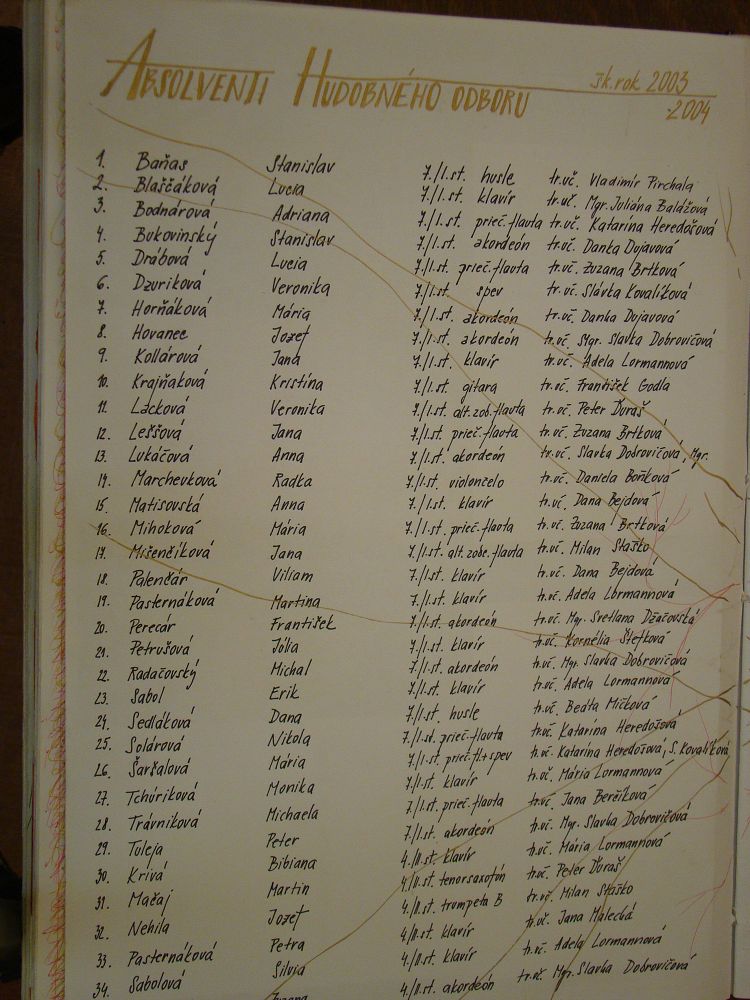 ABSOLVENTI HUDOBNÉHO ODBORU šk.rok 2003
-2004
1. Baňas Stanislav 7./I.st. husle tr.uč. Vladimír Pirchala
2. Blaščáková Lucia 7./I.st. klavír tr.uč. Mgr. Juliána Balážová
3. Bodnárová Adriana 7./I.st. prieč.flauta tr.uč. Katarína Heredošová
4. Bukovinský Stanislav 7./I.st. akordeón tr.uč. Danka Dujavová
5. Drábová Lucia 7./I.st. prieč.flauta tr.uč. Zuzana Brtková
6. Dzuriková Veronika 7./I.st. spev tr.uč. Slávka Kovalíková
7. Horňáková Mária 7./I.st. akordeón tr.uč. Danka Dujavová
8. Hovanec Jozef 7./I.st. akordeón tr.uč. Mgr. Slavka Dobrovičová
9. Kollárová Jana 7./I.st. klavír tr.uč. Adela Lormannová
10. Krajňaková Kristína 7./I.st. gitara tr.uč. František Godla
11. Lacková Veronika 7./I.st. alt.zob.flauta tr.uč. Peter Ďuraš
12. Leššová Jana 7./I.st. prieč.flauta tr.uč. Zuzana Brtková
13. Lukáčová Anna 7./I.st. akordeón tr.uč. Slavka Dobrovičová, Mgr.
14. Marchevková Radka 7./I.st. violončelo tr.uč. Daniela Boňková
15. Matisovská Anna 7./I.st. klavír tr.uč. Dana Bejdová
16. Mihoková Mária 7./I.st. prieč.flauta tr.uč. Zuzana Brtková
17. Mišenčíková Jana 7./I.st. alt.zobc.flauta tr.uč. Milan Staško
18. Palenčár Viliam 7./I.st. klavír tr.uč. Dana Bejdová
19. Pasternáková Martina 7./I.st. klavír tr.uč. Adela Lormannová
20. Perecár František 7./I.st. akordeón tr.uč. Mgr. Svetlana Džačovská
21. Petrušová Júlia 7./I.st. klavír tr.uč. Kornélia Štefková
22. Radačovský Michal 7./I.st. akordeón tr.uč. Mgr. Slavka Dobrovičová
23. Sabol Erik 7./I.st. klavír tr.uč. Adela Lormannová
24. Sedláková Dana 7./I.st. husle tr.uč. Beáta Mičková
25. Solárová Nikola 7./I.st. prieč.flauta tr.uč. Katarína Heredošová
26. Šaršalová Mária 7./I.st. prieč.fl+spev tr.uč. Katarína Heredošová, S. Kovalíková
27. Tchúriková Monika 7./I.st. klavír tr.uč. Mária Lormannová
28. Trávniková Michaela 7./I.st. prieč.flauta tr.uč. Jana Berčíková
29. Tuleja Peter 7./I.st. akordeón tr.uč. Mgr. Slavka Dobrovičová
30. Krivá Bibiana 4./II.st. klavír tr.uč. Mária Lormannová
31. Mačaj Martin 4./II.st. tenorsaxofón tr.uč. Peter Ďuraš
32. Nehila Jozef 4./II.st. trumpeta B tr.uč. Milan Staško
33. Pasternáková Petra 4./II.st. klavír tr.uč. Jana Malechá
34. Sabolová Silvia 4./II.st. klavír tr.uč. Adela Lormannová
4./II.st. akordeón tr.uč. Mgr. Slavka Dobrovičová